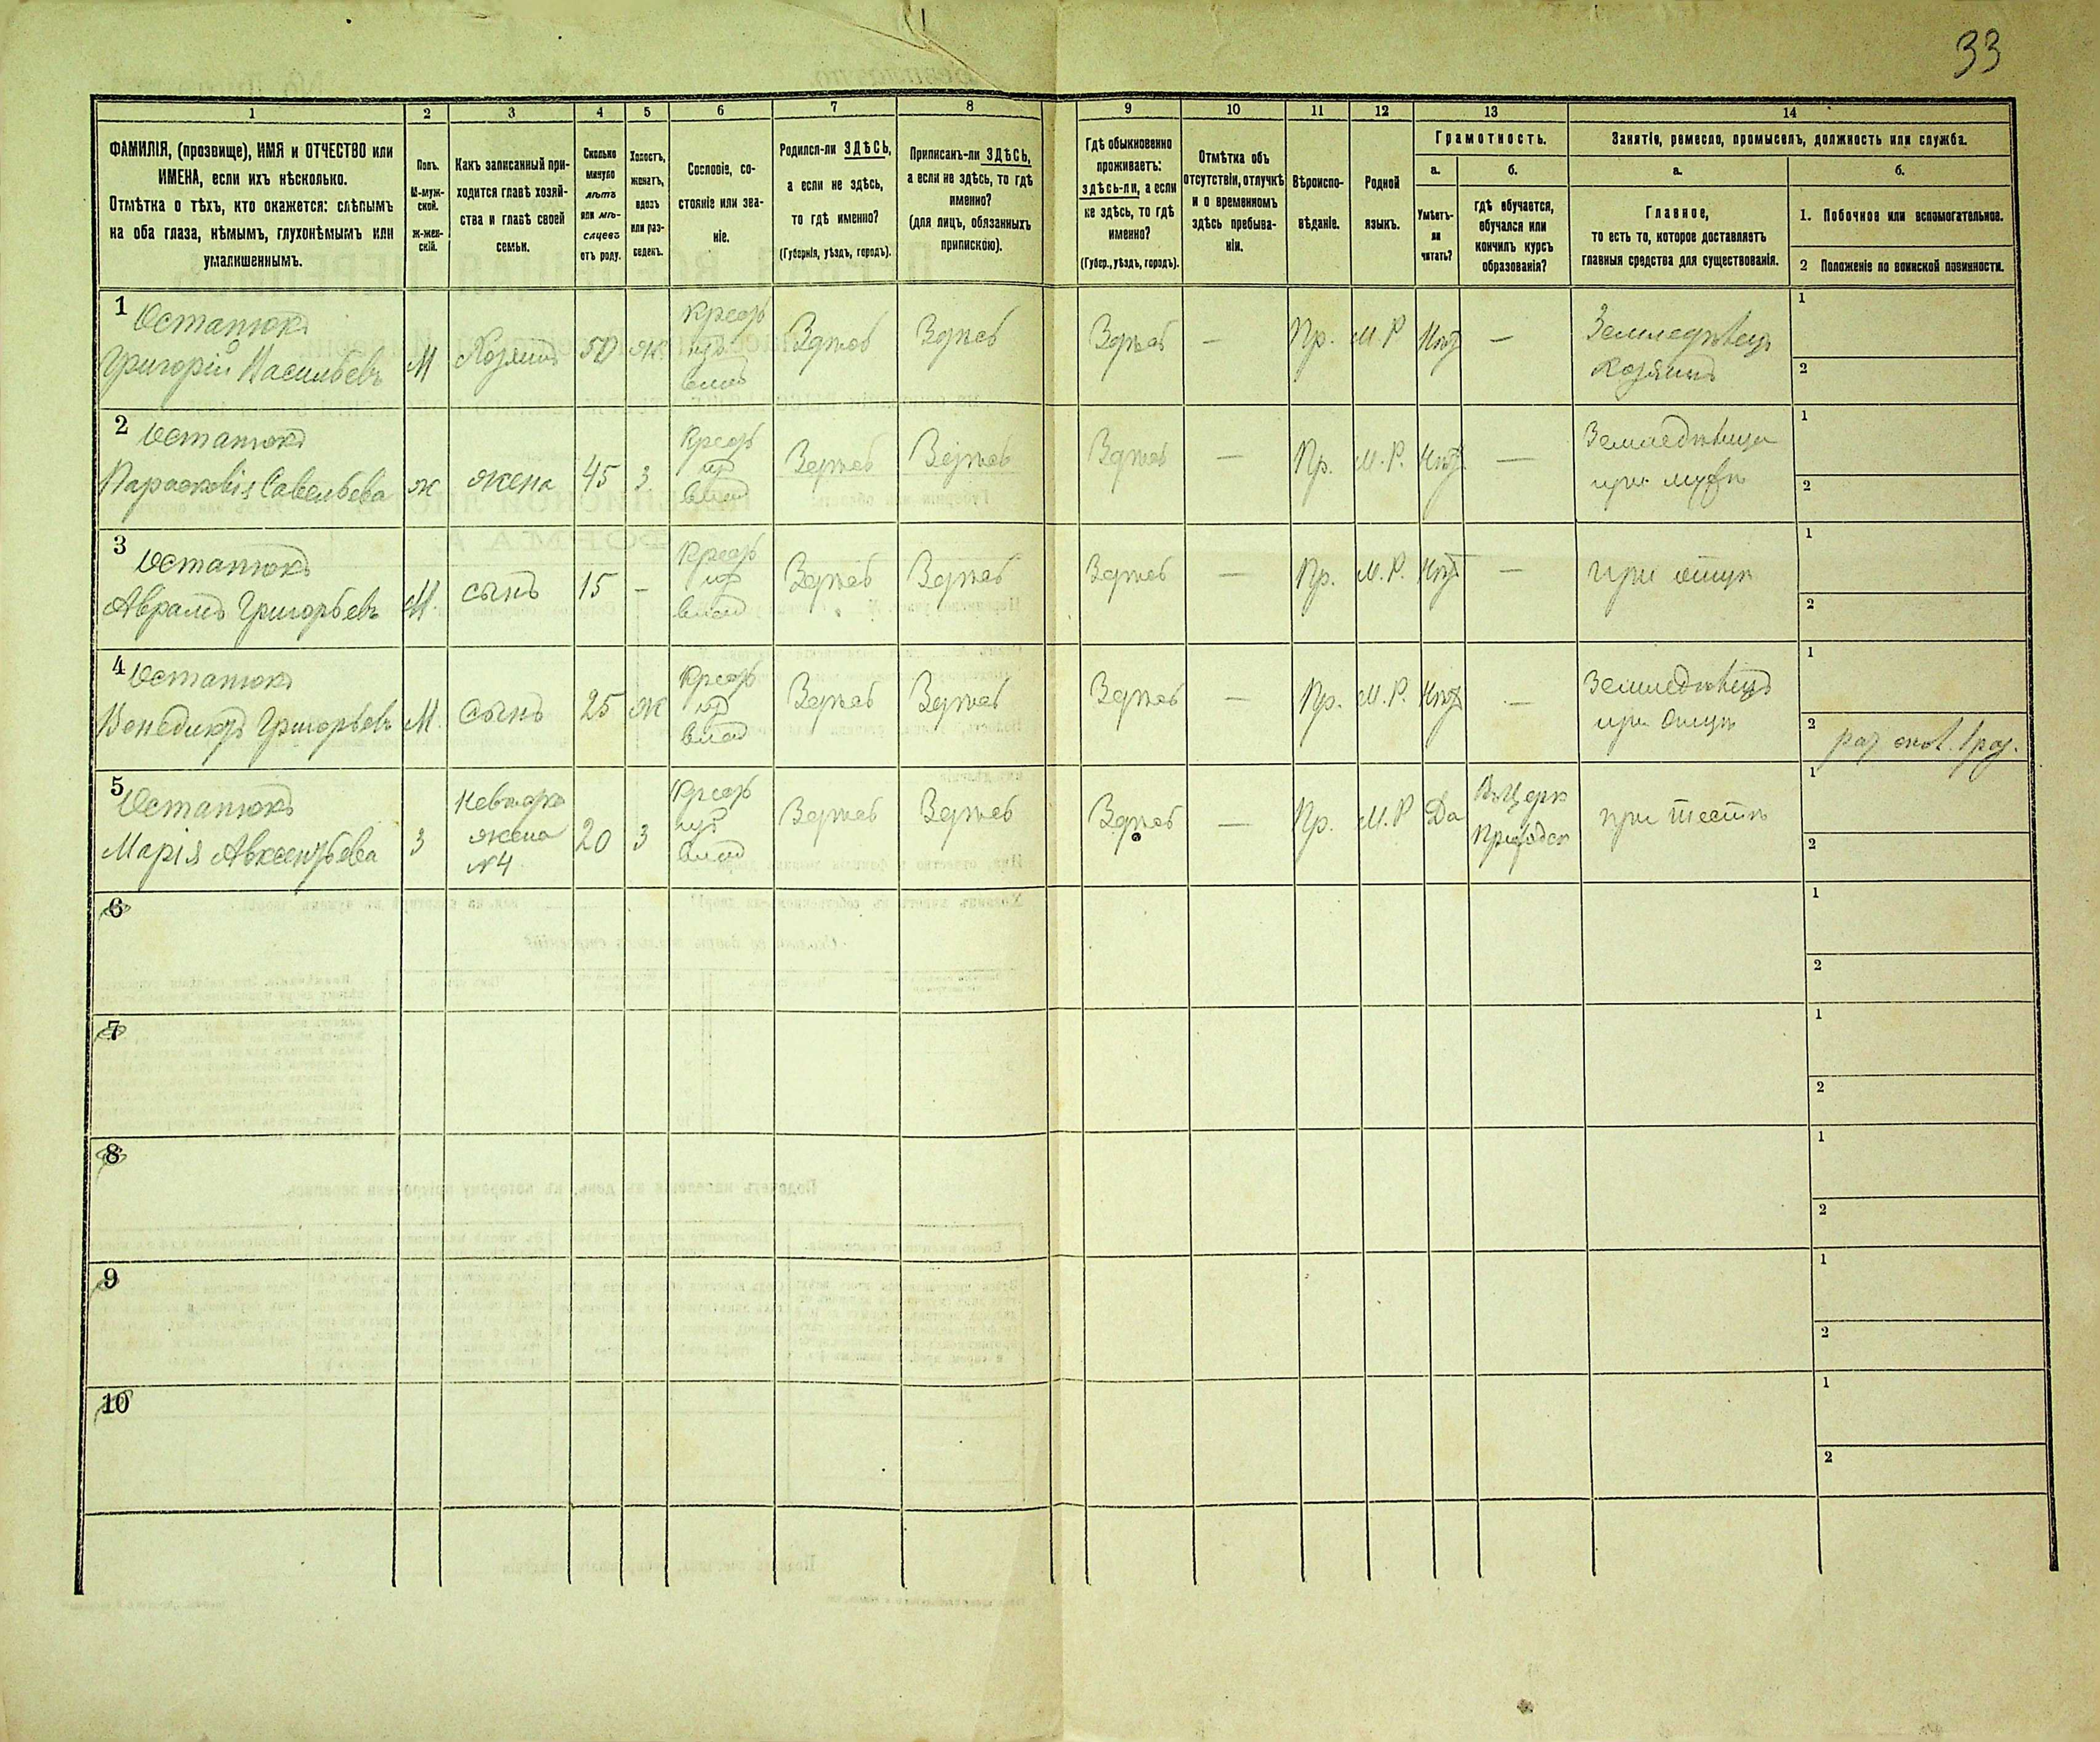 33
1
2
3
4
5
6
7
8
9
10
11
12
13
14
ФАМИЛІЯ, (прозвище), ИМЯ и ОТЧЕСТВО или
ИМЕНА, если ихъ нѣсколько.
Отмѣтка о тѣхъ, кто окажется: слѣпымъ
на оба глаза, нѣмымъ, глухонѣмымъ или
умалишеннымъ.
Полъ.
М-муж-
ской.
ж-жен-
скій.
Какъ записанный при-
ходится главѣ хозяй-
ства и главѣ своей
семьи.
Сколько
минуло
лѣтъ
или мѣ-
сяцевъ
отъ роду.
Холостъ,
женатъ,
вдовъ
или раз-
веденъ.
Сословіе, со-
стояніе или зва-
ніе.
Родился-ли ЗДѢСЬ,
а если не здѣсь,
то гдѣ именно?
(Губернія, уѣздъ, городъ).
Приписанъ-ли ЗДѢСЬ,
а если не здѣсь, то гдѣ
именно?
(для лицъ, обязанныхъ
припискою).
Гдѣ обыкновенно
проживаетъ:
здѣсь-ли, а если
не здѣсь, то гдѣ
именно?
(Губер., уѣздъ, городъ).
Отмѣтка объ
отсутствіи, отлучкѣ
и о временномъ
здѣсь пребыва-
ніи.
Вѣроиспо-
вѣданіе.
Родной
языкъ.
Грамотность.
а.
Умѣетъ-
ли
читать?
б.
гдѣ обучается,
обучался или
кончилъ курсъ
образованія?
Занятіе, ремесло, промыселъ, должность или служба.
а.
Главное,
то есть то, которое доставляетъ
главныя средства для существованія.
б.
1. Побочное или вспомогательное.
2 Положеніе по воинской повинности.
1
Остапюкъ
Григорій Васильевъ
М
Хозяинъ
50
ж
Здѣсь
Здѣсь
Здѣсь
—
Пр.
М. Р
Нѣтъ
—
Земледѣлецъ
Хозяинъ
1
2
2
Остапюкъ
Парасковія Савельева
ж
жена
45
З
Здѣсь
Здѣсь
Здѣсь
—
Пр.
М. Р.
Нѣтъ
—
при мужѣ
1
2
3
Остапюкъ
Аврамъ Григорьевъ
М.
сынъ
15
-
Здѣсь
Здѣсь
Здѣсь
—
Пр.
М. Р.
Нѣтъ
—
при отцѣ
1
2
4
Остапюкъ
Венедиктъ Григорьевъ
М.
сынъ
25
ж
Здѣсь
Здѣсь
Здѣсь
—
Пр.
М. Р.
Нѣтъ
—
Земледѣлецъ
при отцѣ
1
2
5
Остапюкъ
Марія Авксентьева
З
жена
№4
20
З
Здѣсь
Здѣсь
Здѣсь
—
Пр.
М. Р
Да
при тестѣ
1
2
6
1
2
7
1
2
8
1
2
9
1
2
10
1
2